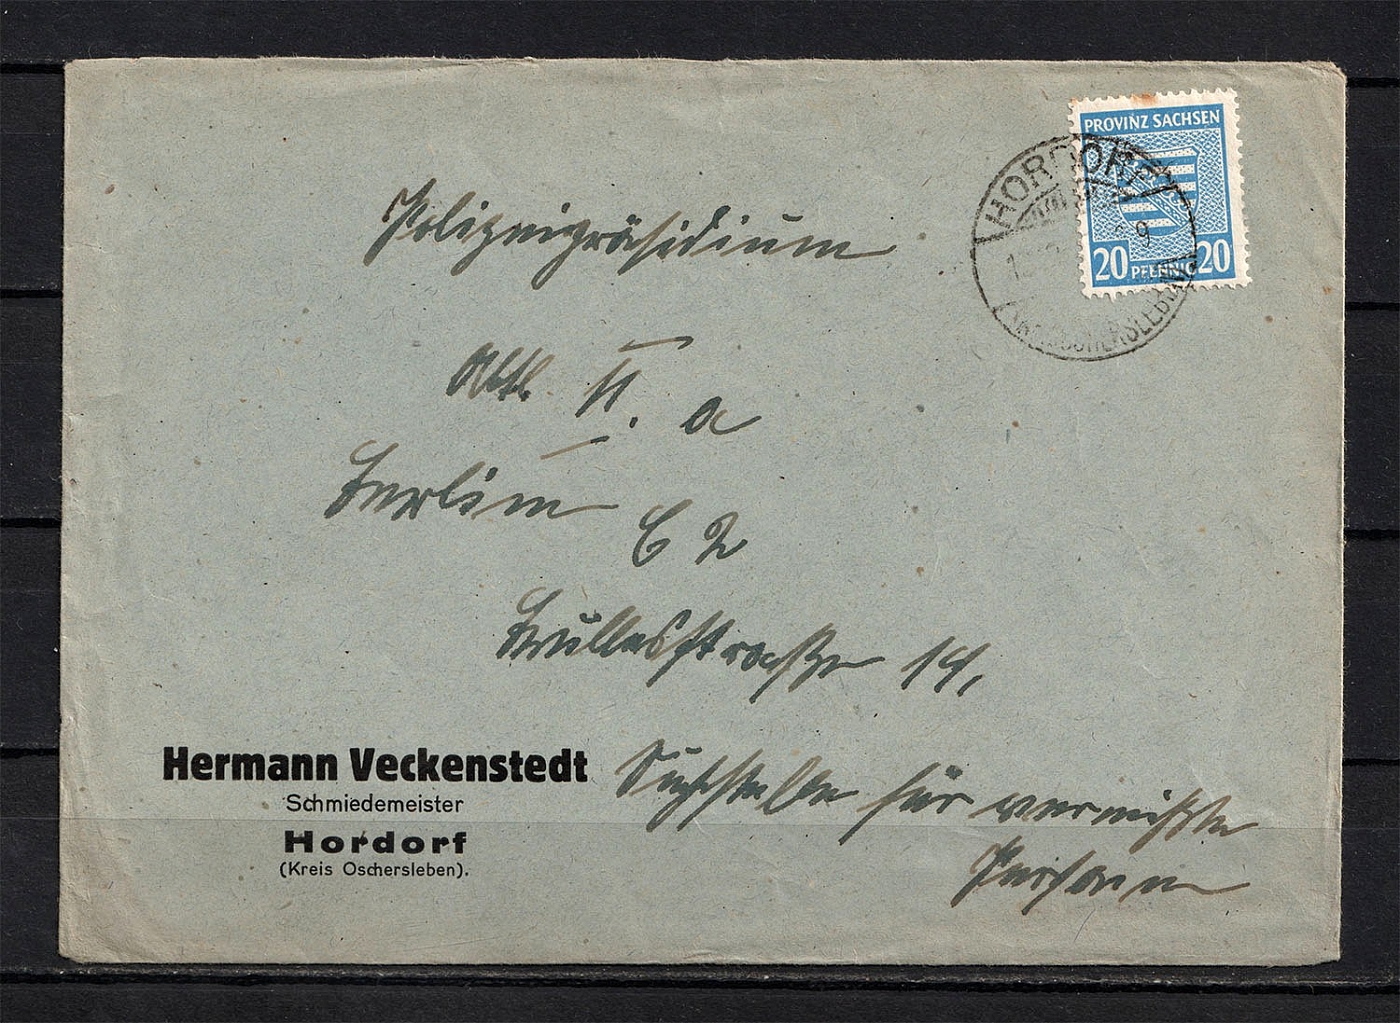 PROVINZ SACHSEN
20 PFENNIG 20
HORDORF
9
Polizeipräsidium
Abtl. II. a
Berlin C 2
straße 14,
Suchstelle für vermißte
Personen
Hermann Veckenstedt
Schmiedemeister
Hordorf
(Kreis Oschersleben).